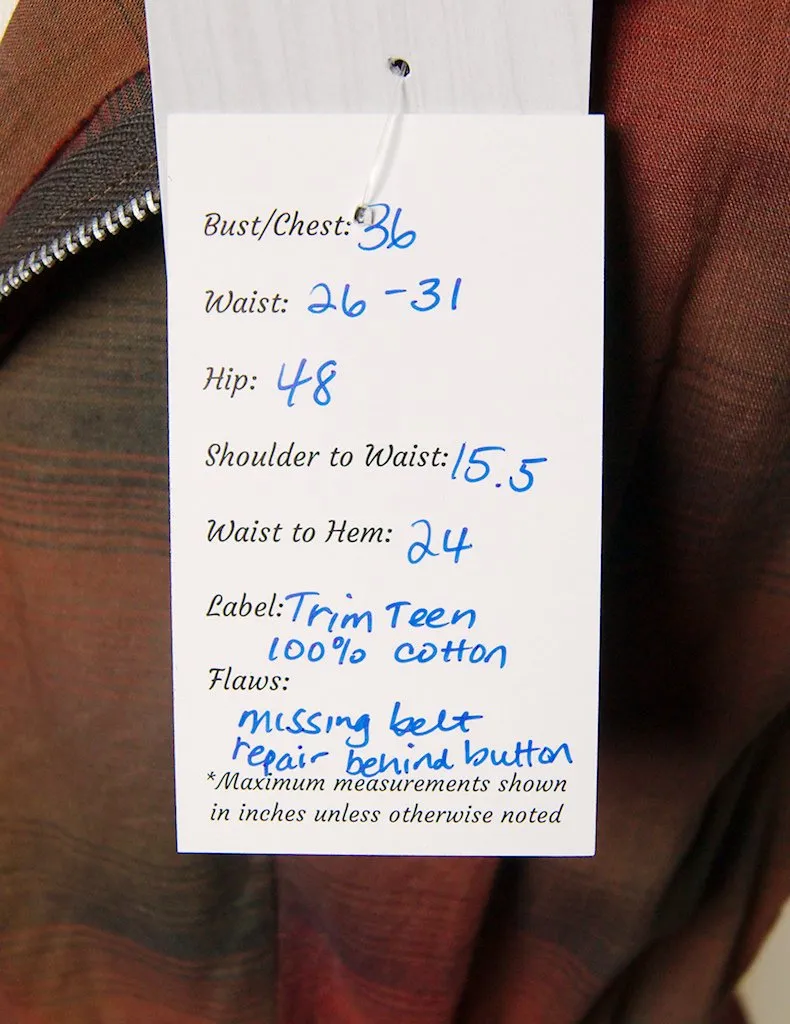 Bust/Chest: 36
Waist: 26-31
Hip: 48
Shoulder to Waist: 15.5
Waist to Hem: 24
Label: Trim Teen
100% cotton
Flaws:
missing belt
repair behind button
*Maximum measurements shown
in inches unless otherwise noted